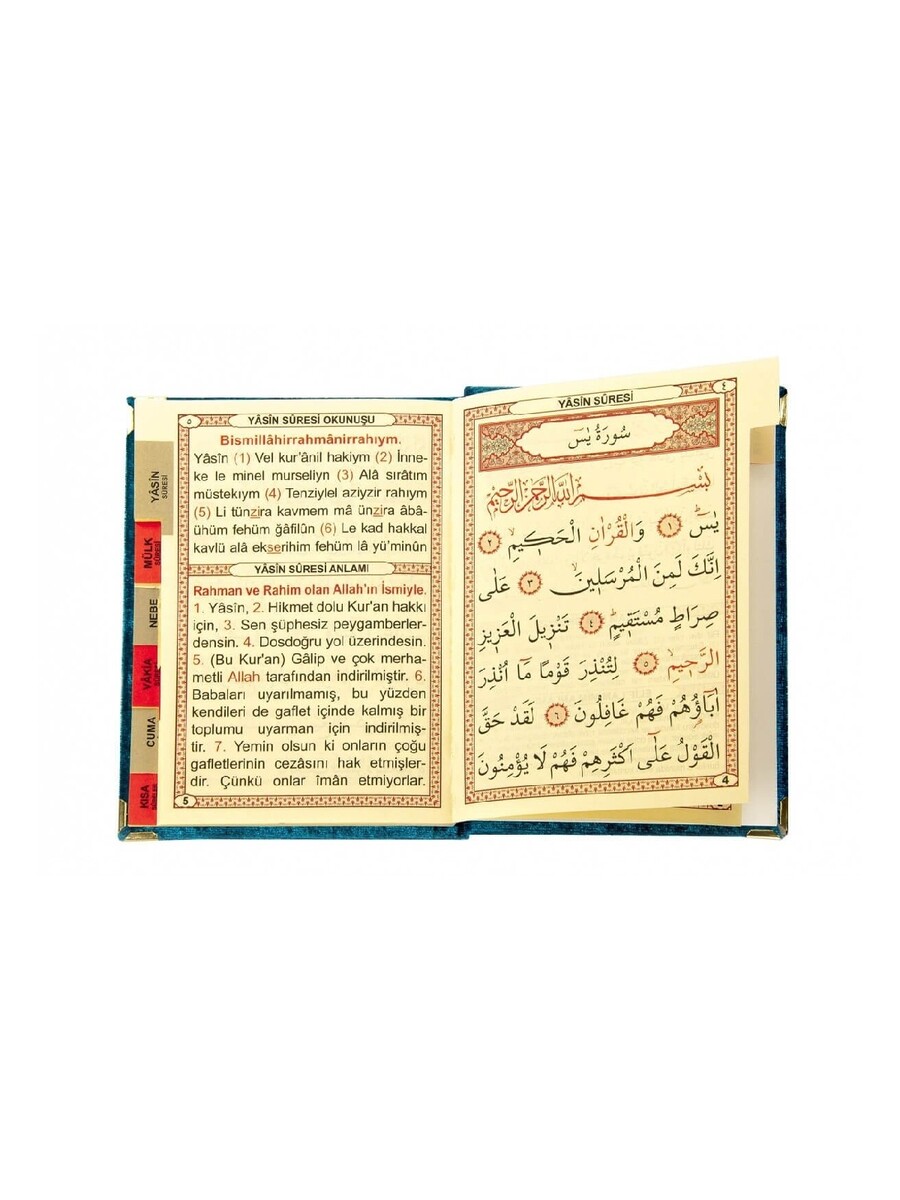 ٤
YÂSİN SÛRESİ
سُورَةُ يٰسٓ
بِسْمِ اللّٰهِ الرَّحْمٰنِ الرَّحِيمِ
يٰسٓ ١ وَالْقُرْاٰنِ الْحَكِيمِۙ ٢
اِنَّكَ لَمِنَ الْمُرْسَلِينَۙ ٣ عَلٰى
صِرَاطٍ مُسْتَقِيمٍۜ ٤ تَنْزِيلَ الْعَزِيزِ
الرَّحِيمِۙ ٥ لِتُنْذِرَ قَوْمًا مَٓا اُنْذِرَ
اٰبَٓاؤُ۬هُمْ فَهُمْ غَافِلُونَ ٦ لَقَدْ حَقَّ
الْقَوْلُ عَلٰٓى اَكْثَرِهِمْ فَهُمْ لَا يُؤْمِنُونَ
4
٥
YÂSÎN SÛRESİ OKUNUŞU
Bismillâhirrahmânirrahıym.
Yâsîn (1) Vel kur'ânil hakiym (2) İnne-
ke le minel murseliyn (3) Alâ sırâtım
müstekıym (4) Tenziylel aziyzir rahıym
(5) Li tünzira kavmem mâ ünzira âbâ-
ühüm fehüm ğafilûn (6) Le kad hakkal
kavlü alâ ekserihim fehüm lâ yü'minûn
YÂSÎN SÛRESİ ANLAMI
Rahman ve Rahim olan Allah'ın İsmiyle.
1. Yâsîn, 2. Hikmet dolu Kur'an hakkı
için, 3. Sen şüphesiz peygamberler-
densin. 4. Dosdoğru yol üzerindesin.
5. (Bu Kur'an) Gâlip ve çok merha-
metli Allah tarafından indirilmiştir. 6.
Babaları uyarılmamış, bu yüzden
kendileri de gaflet içinde kalmış bir
toplumu uyarman için indirilmiş-
tir. 7. Yemin olsun ki onların çoğu
gafletlerinin cezasını hak etmişler-
dir. Çünkü onlar îmân etmiyorlar.
5
YÂSİN
SÛRESİ
MÜLK
SÛRESİ
NEBE
VÂKİA
CUMA
KISA